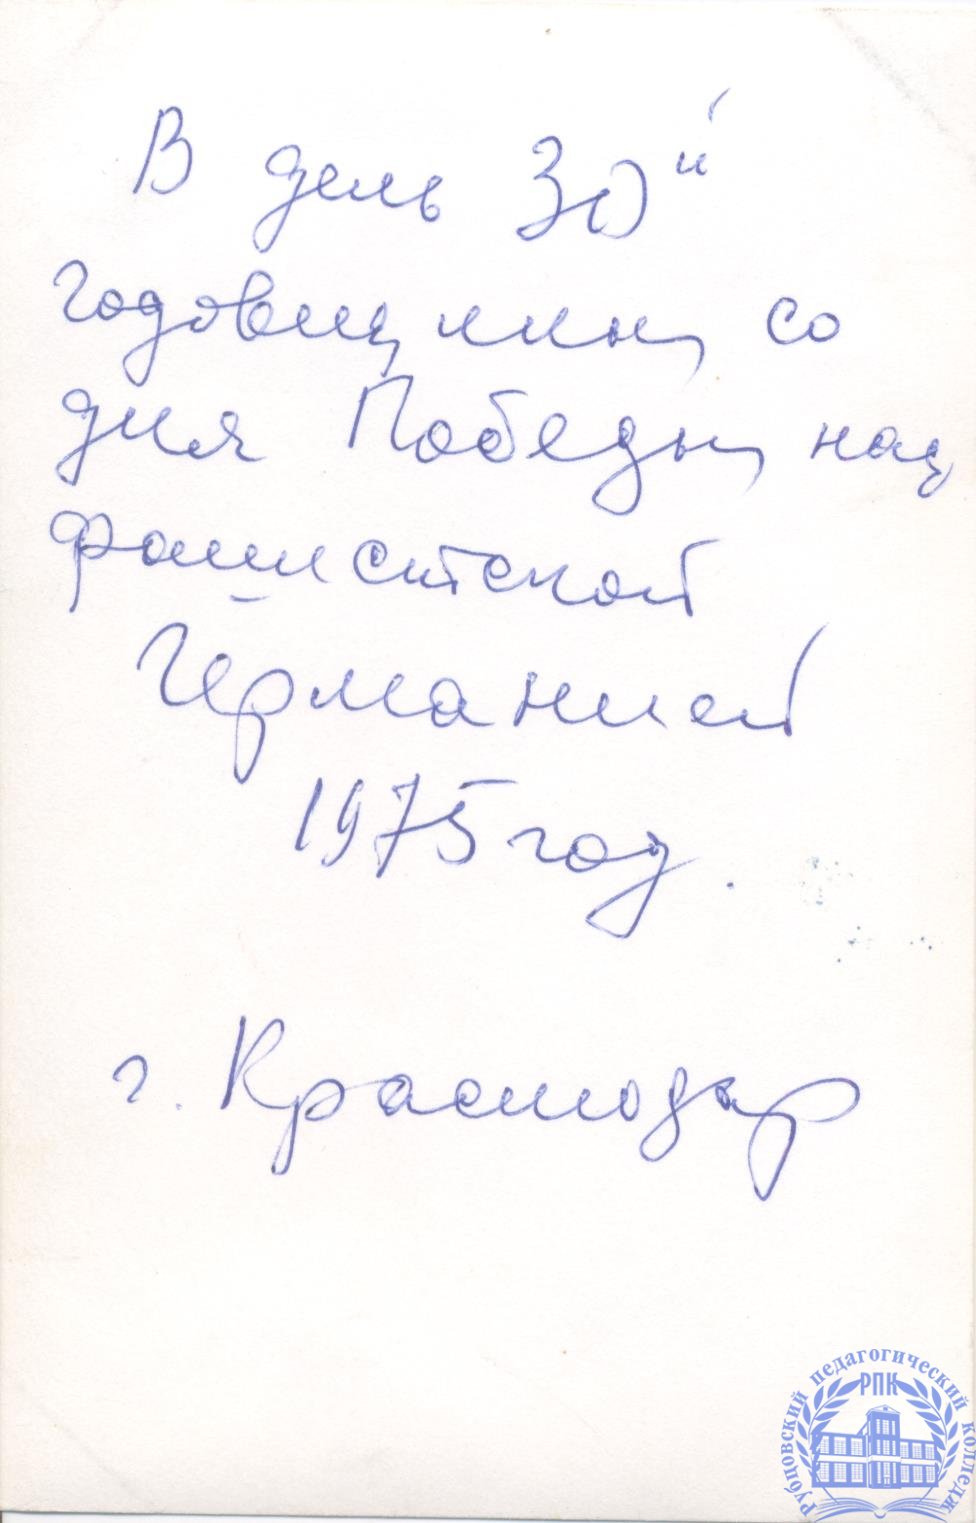 В день 30й
годовщины со
дня Победы над
фашистской
Германией
1975 год.
г. Краснодар
Рубцовский педагогический колледж
РПК